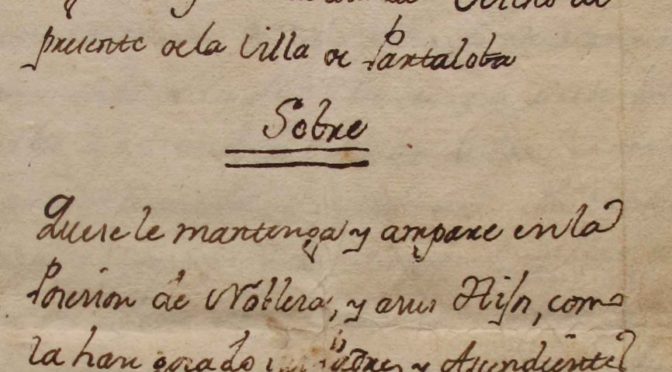 presente de la Villa de Pantaloba
Sobre
Quese le mantenga y ampare en la
Posesion de Nobleza, y asus Hijos, como
la han gozado sus Padres y Asendientes